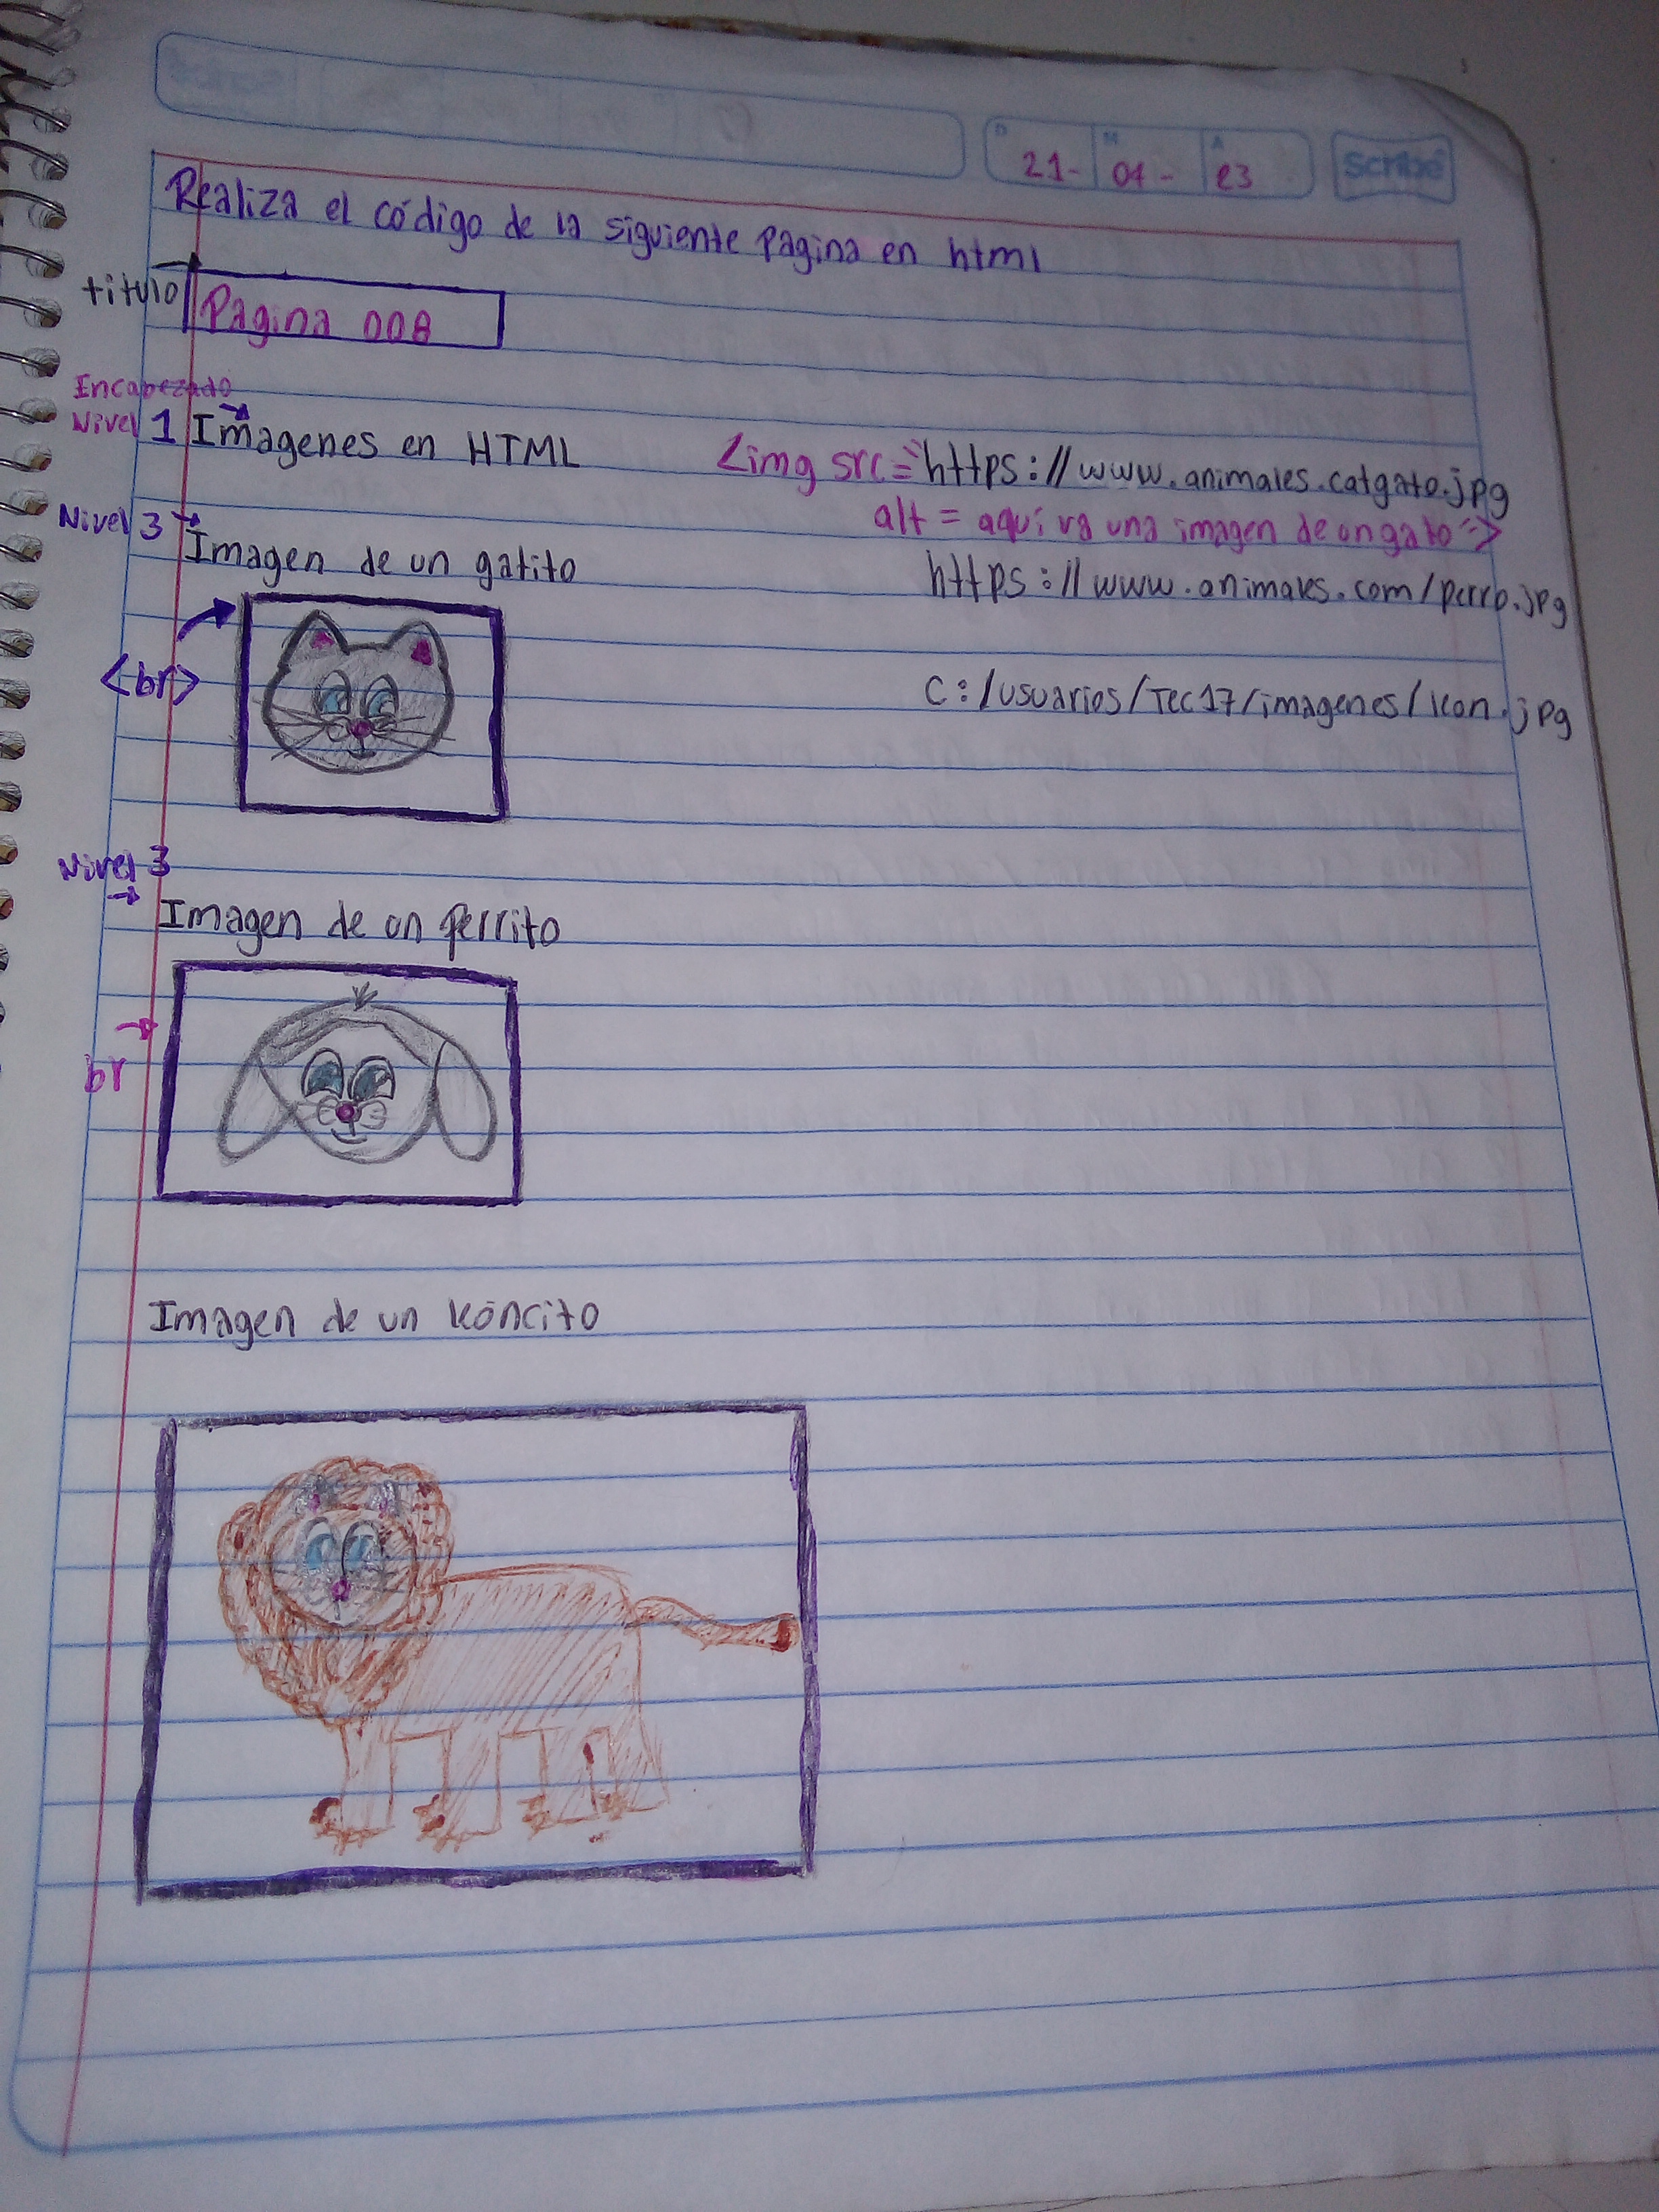 D 21- M 01- A 23 Scribe
Realiza el código de la siguiente pagina en html
titulo Pagina 008
Encabezado
Nivel 1 Imagenes en HTML
<img src="https://www.animales.catgato.jpg
alt = aquí va una imagen de un gato">
Nivel 3 Imagen de un gatito
https://www.animales.com/perro.jpg
<br>
C:/usuarios/Tec17/imagenes/leon.jpg
Nivel 3
Imagen de un perrito
br
Imagen de un leóncito